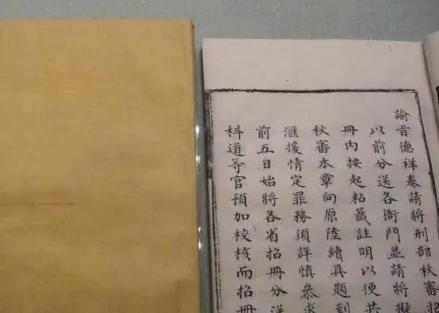 諭旨德祥奏請將刑部秋審招
以前分送各衙門並請將擬
冊內按起粘籤註明以便共
秋審本章向原陸續具題到
滙核情定罪務須詳慎恭求
前五日始將各省招冊分送
科道等官預加校核而招冊